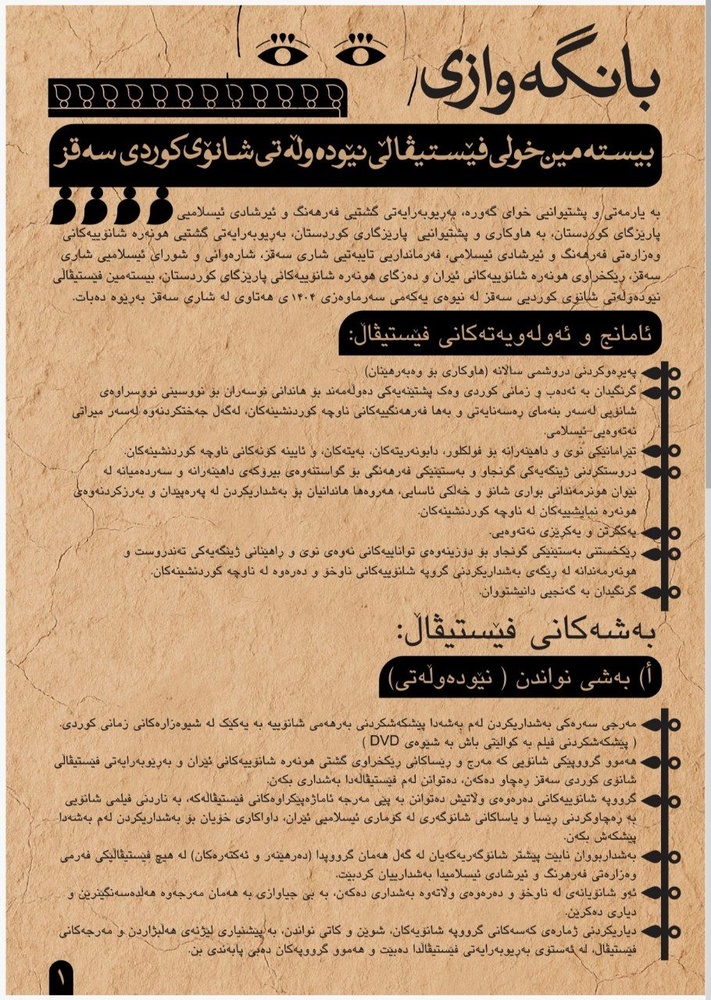 بانگەوازی
بیستەمین خولی فێستیڤاڵی نێودەوڵەتی شانۆی کوردی سەقز
بە یارمەتی و پشتیوانیی خوای گەورە، بەڕێوبەرایەتی گشتیی فەرهەنگ و ئیرشادی ئیسلامیی
پارێزگای کوردستان، بە هاوکاری و پشتیوانیی پارێزگاری کوردستان، بەڕێوبەرایەتی گشتیی هونەرە شانۆییەکانی
وەزارەتی فەرهەنگ و ئیرشادی ئیسلامی، فەرمانداریی تایبەتیی شاری سەقز، شارەوانی و شورای ئیسلامیی شاری
سەقز، ڕێکخراوی هونەرە شانۆییەکانی ئێران و دەزگای هونەرە شانۆییەکانی پارێزگای کوردستان، بیستەمین فێستیڤاڵی
نێودەوڵەتی شانۆی کوردیی سەقز لە نیوەی یەکەمی سەرماوەزی ۱۴۰۴ی هەتاوی لە شاری سەقز بەڕێوە دەبات.
ئامانج و ئەولەویەتەکانی فێستیڤاڵ:
پەیڕەوکردنی دروشمی ساڵانە (هاوکاری بۆ وەبەرهێنان)
گرنگیدان بە ئەدەب و زمانی کوردی وەک پشتێنەیەکی دەوڵەمەند بۆ هاندانی نوسەران بۆ نووسینی نووسراوەی
شانۆیی لەسەر بنەمای ڕەسەنایەتی و بەها فەرهەنگییەکانی ناوچە کوردنشینەکان، لەگەڵ جەختکردنەوە لەسەر میراتی
نەتەوەیی-ئیسلامی.
تێڕامانێکی نوێ و داهێنەرانە بۆ فولکلور، دابونەریتەکان، بەیتەکان، و ئایینە کۆنەکانی ناوچە کوردنشینەکان.
دروستکردنی ژینگەیەکی گونجاو و بەستێنێکی فەرهەنگی بۆ گواستنەوەی بیرۆکەی داهێنەرانە و سەردەمیانە لە
نێوان هونەرمەندانی بواری شانۆ و خەلکی ئاسایی، هەروەها هاندانیان بۆ بەشداریکردن لە پەرەپێدان و بەرزکردنەوەی
هونەرە نمایشییەکان لە ناوچە کوردنشینەکان.
یەکگرتن و یەکڕێزی نەتەوەیی.
ڕێکخستنی بەستێنێکی گونجاو بۆ دۆزینەوەی تواناییەکانی نەوەی نوێ و ڕاهێنانی ژینگەیەکی تەندروست و
هونەرمەندانە لە ڕێگەی بەشداریکردنی گرووپە شانۆییەکانی ناوخۆ و دەرەوە لە ناوچە کوردنشینەکان.
گرنگیدان بە گەنجیی دانیشتووان.
بەشەکانی فێستیڤاڵ:
أ) بەشی نواندن ( نێودەوڵەتی)
مەرجی سەرەکی بەشداریکردن لەم بەشەدا پێشکەشکردنی بەرهەمی شانۆییە بە یەکێک لە شیوەزارەکانی زمانی کوردی.
( پێشکەشکردنی فیلم بە کوالێتی باش بە شێوەی DVD )
هەموو گرووپێکی شانۆیی کە مەرج و ڕێساکانی ڕێکخراوی گشتی هونەرە شانۆییەکانی ئێران و بەڕێوبەرایەتی فێستیڤاڵی
شانۆی کوردی سەقز ڕەچاو دەکەن، دەتوانن لەم فێستیڤاڵەدا بەشداری بکەن.
گرووپە شانۆییەکانی دەرەوەی وڵاتیش دەتوانن بە پێی مەرجە ئاماژەپێکراوەکانی فێستیڤاڵەکە، بە ناردنی فیلمی شانۆیی
بە ڕەچاوکردنی ڕێسا و یاساکانی شانۆگەری لە کۆماری ئیسلامیی ئێران، داواکاری خۆیان بۆ بەشداریکردن لەم بەشەدا
پێشکەش بکەن.
بەشداربووان نابێت پێشتر شانۆگەریەکەیان لە گەل هەمان گرووپدا (دەرهێنەر و ئەکتەرەکان) لە هیچ فێستیڤاڵێکی فەرمی
وەزارەتی فەرهرنگ و ئیرشادی ئیسلامیدا بەشدارییان کردبێت.
ئەو شانۆیانەی لە ناوخۆ و دەرەوەی ولاتەوە بەشداری دەکەن، بە بێ جیاوازی بە هەمان مەرجەوە هەڵدەسەنگێنرێن و
دیاری دەکرێن.
دیاریکردنی ژمارەی کەسەکانی گرووپە شانۆیەکان، شوێن و کاتی نواندن، بە پێشنیاری لێژنەی هەڵبژاردن و مەرجەکانی
فێستیڤاڵ، لە ئەستۆی بەڕێوبەرایەتی فێستیڤاڵدا دەبێت و هەموو گرووپەکان دەبێ پابەندی بن.
۱